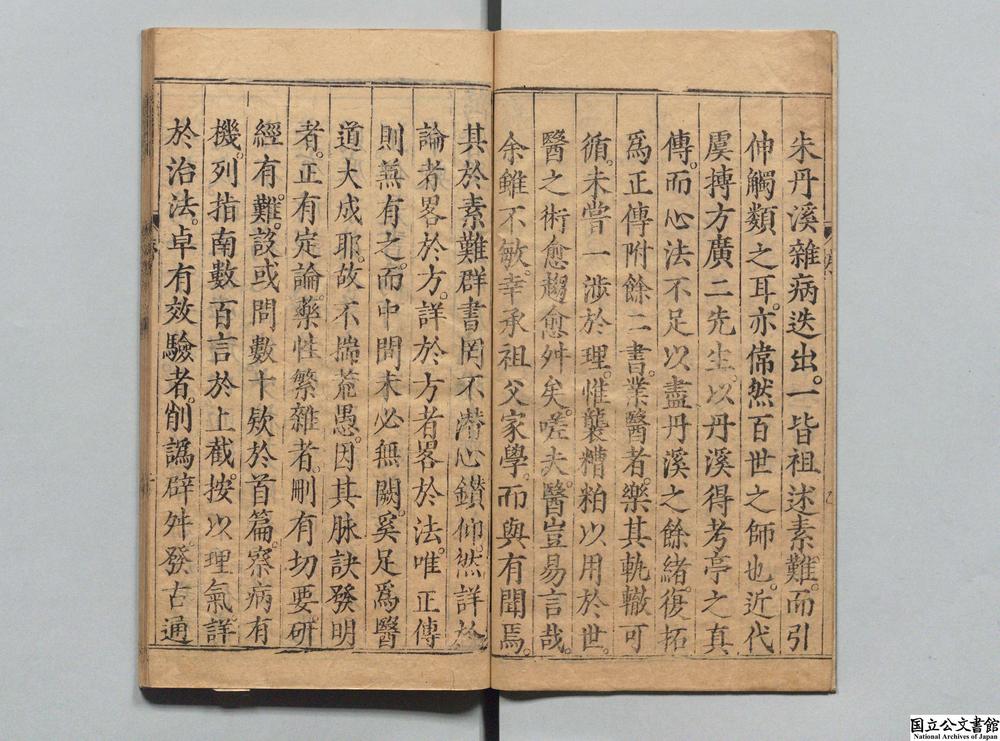 朱丹溪雜病迭出。一皆祖述素難。而引
伸觸類之耳。亦儒然百世之師也。近代
虞摶方廣二先生。以丹溪得考亭之真
傳。而心法不足以盡丹溪之餘緒。復拓
爲正傳附餘二書。業醫者。樂其軌轍可
循。未嘗一涉於理。惟襲糟粕以用於世。
醫之術愈趨愈舛矣。嗟夫。醫豈易言哉。
余雖不敏。幸承祖父家學。而與有聞焉。
其於素難群書罔不潛心鑚仰。然詳於
論者畧於方。詳於方者畧於法。唯正傳
則無有之。而中間未必無闕。奚足爲醫
道大成耶。故不揣荒愚。因其脉訣發明
者。正有定論。藥性繁雜者。刪有切要。研
經有難。設或問數十欵於首篇。察病有
機。列指南數百言於上截。按以理氣詳
於治法。卓有效驗者。削譌辟舛。發古通
国立公文書館
National Archives of Japan